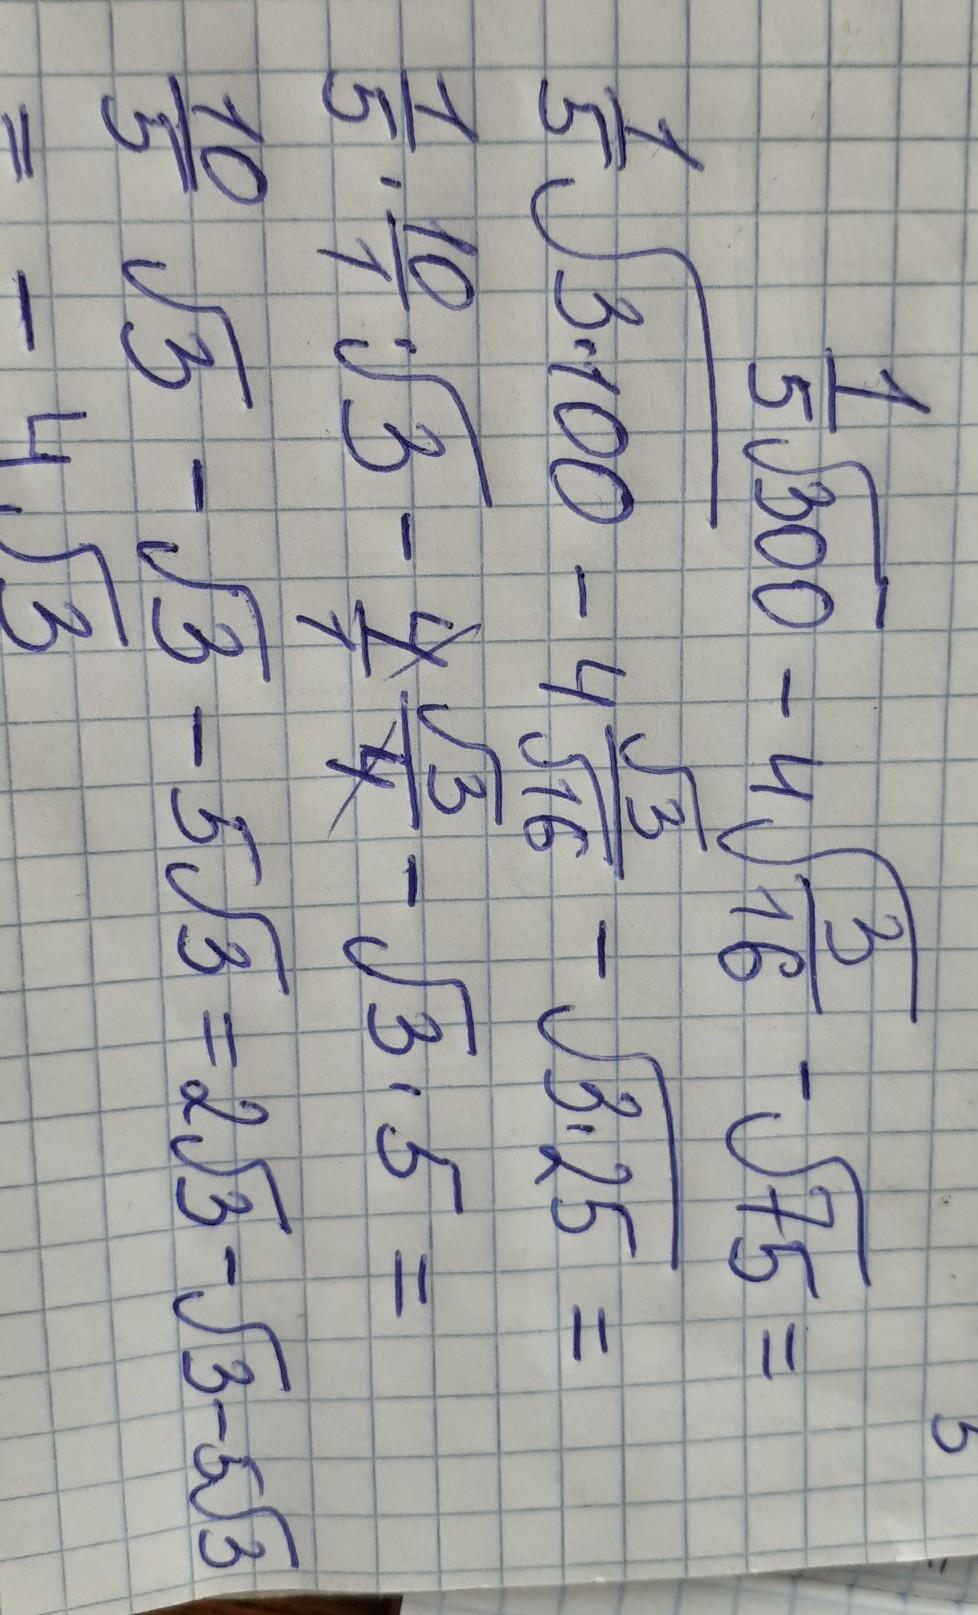 5
1/5 √300 - 4√(3/16) - √75 =
1/5 √(3·100) - 4 √3/√16 - √(3·25) =
1/5 · 10/1 · √3 - 4/1 √3/4 - √3 · 5 =
10/5 √3 - √3 - 5√3 = 2√3 - √3 - 5√3
= - 4·√3